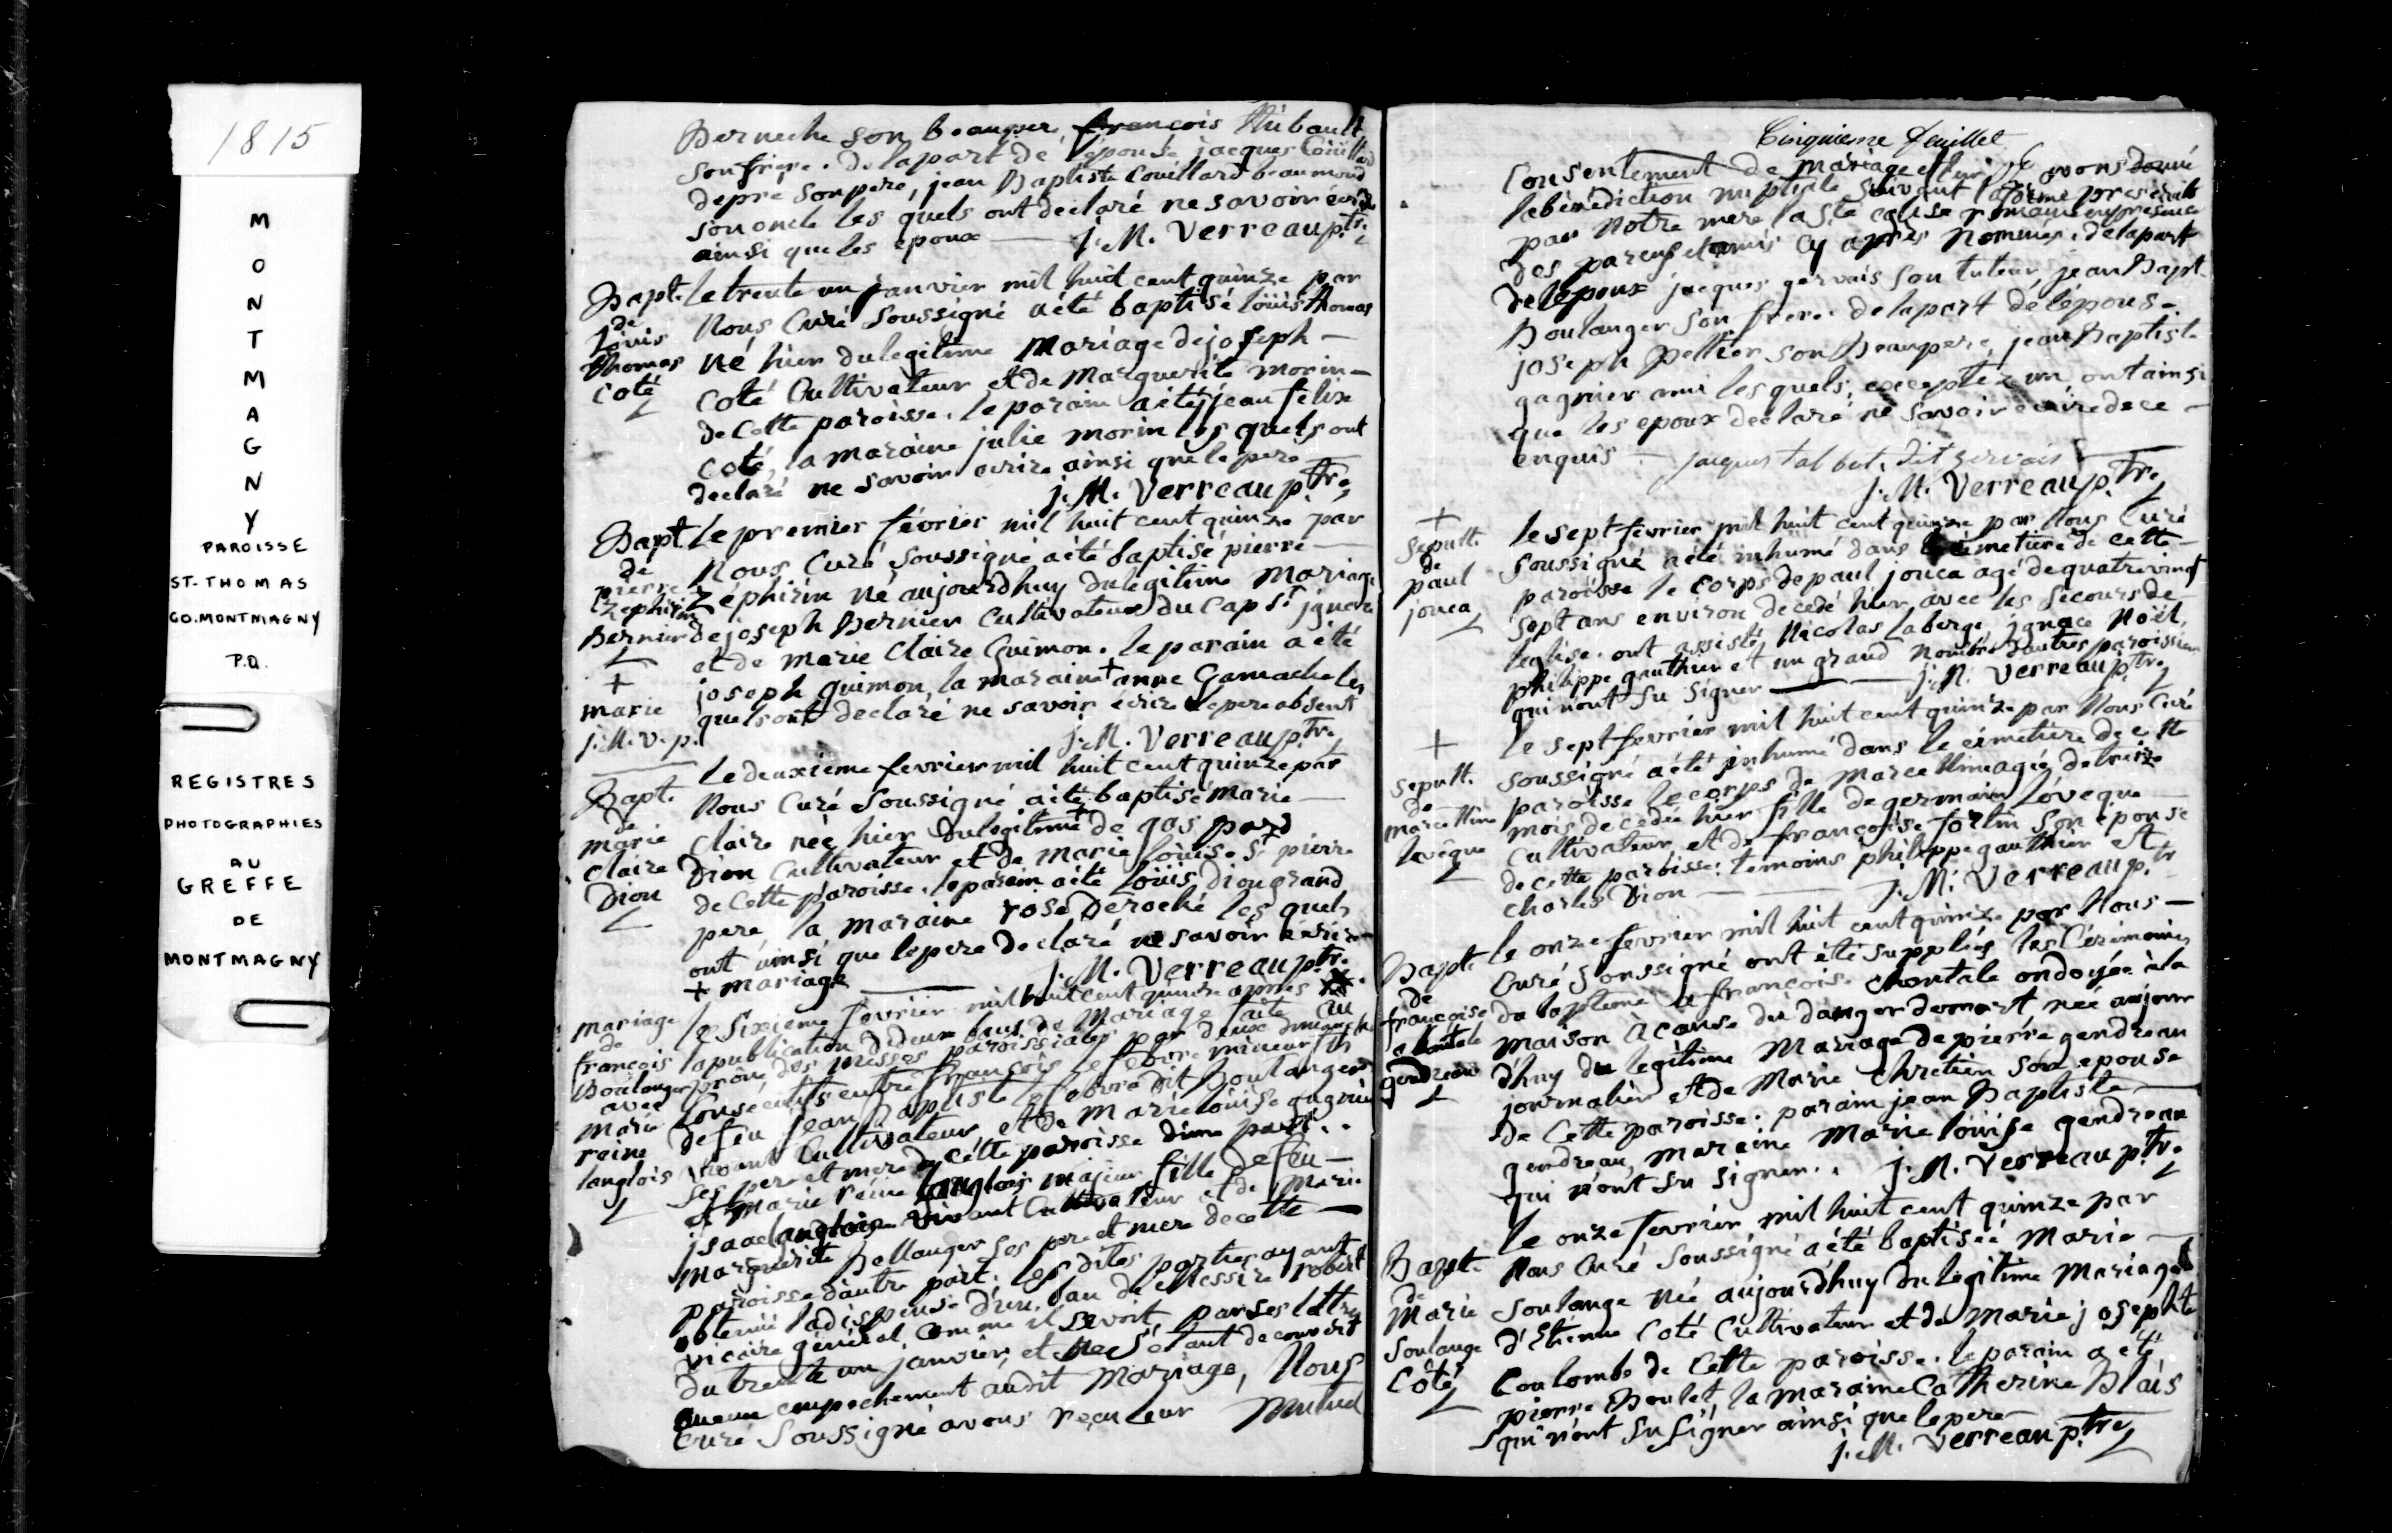 1815
MONTMAGNY
PAROISSE
ST-THOMAS
CO. MONTMAGNY
P.Q.
REGISTRES
PHOTOGRAPHIES
AU
GREFFE
DE
MONTMAGNY
Berneche son beaupere, françois Thibault
son frere. De la part de l'épouse jacques Couillard
depré son pere, jean Baptiste Couillard beaumond
son oncle les quels ont declaré ne savoir écrire
ainsi que les epoux — j. M. Verreau ptr.
Bapt. de Louis Thomas Coté
le trente un janvier mil huit cent quinze par
Nous Curé Soussigné a été baptisé loüis thomas
né hier du legitime mariage de joseph —
Coté Cultivateur et de Marguerite morin —
de Cette paroisse. le parain a été jean felix
Coté, la maraine julie morin les quels ont
declaré ne savoir ecrire ainsi que le pere
j. M. Verreau ptre
Bapt de pierre zephirin Bernier
+ marie
j. M. v. p.
Le premier février mil huit cent quinze par
Nous Curé Soussigné a été baptisé pierre —
Zéphirin né aujourdhuy du legitime Mariage
de joseph Bernier Cultivateur du Cap St jgnace
et de Marie Claire Guimon. le parain a été
joseph guimon, la maraine + anne Gamache les
quels ont declaré ne savoir écrire le pere absent
j. M. Verreau ptre.
Bapt. de marie Claire Dion
Le deuxieme fevrier mil huit cent quinze par
Nous Curé Soussigné a été baptisé marie —
Claire née hier du legitime + de gaspard
Dion Cultivateur et de Marie loüise St pierre
de Cette paroisse. le parain a été loüis dion grand
pere la maraine rose Deroché les quels
ont ainsi que le pere declaré ne savoir ecrire —
+ mariage — j. M. Verreau ptr.
mariage de françois Boulanger avec Marie reine langlois
le Sixieme fevrier mil huit cent quinze apres
la publication de deux bans de Mariage faite au
prône des messes paroissiales par deux dimanches
Consécutifs entre françois lefebvre mineur fils
de feu jean Baptiste lefebvre dit Boulanger
vivant Cultivateur et de Marie loüise gagnié
ses pere et mere de cette paroisse d'une part. .
et Marie reine langlois majeur fille de feu —
jsaac langlois vivant Cultivateur et de Marie
Marguerite Bellanger ses pere et mere de cette —
paroisse d'autre part. les dites parties ayant
obtenüe la dispense d'un ban de Messire robert
vicaire général comme il se voit par ses lettres
du trente un janvier, et ne s'étant decouvert
aucun empechement audit Mariage, Nous
Curé Soussigné avons reçu leur mutuel
Cinquieme feuillet
Consentement de mariage et leur avons donné
la bénédiction nuptiale suivant la forme prescrite
par Notre mere la Ste eglise romaine en presence
des parens et amis cy apres nommés. de la part
de l'époux jacques gervais son tuteur, jean Bapt.
Boulanger son frere. de la part de l'épouse
joseph Peltier son Beaupere, jean Baptiste
gagnier ami les quels, excepté un, ont ainsi
que les epoux declaré ne savoir ecrire de ce —
enquis — jacques talbot, dit gervais
j. M. Verreau ptre
+ Sepult. de paul jouca
le sept fevrier mil huit cent quinze par Nous Curé
Soussigné a été inhumé dans le cimetiere de cette —
paroisse le Corps de paul jouca agé de quatrevingt
sept ans environ decedé hier avec les secours de
l'eglise. ont assisté Nicolas laberge jgnace Noël,
philippe gauthier et un grand nombre d'autres paroissiens
qui n'ont su signer — j. M. Verreau ptre
+ Sepult. de marcelline levêque
le sept fevrier mil huit cent quinze par Nous Curé
soussigné a été inhumé dans le cimetiere de cette
paroisse le corps de Marcelline agée de treize
mois decedée hier fille de germain lévéque —
Cultivateur et de françoise fortin son epouse
de cette paroisse. temoins philippe gauthier et
charles Dion — j. M. Verreau ptr
Bapt. de françoise chantale gendreau
le onze fevrier mil huit cent quinze par Nous —
Curé Soussigné ont été suppléés les Cérémonies
du baptême a françoise chantale ondoyée à la
maison à cause du danger de mort, née aujour
d'huy du legitime Mariage de pierre gendreau
journalier et de Marie Chretien son epouse
de Cette paroisse. parain jean Baptiste —
gendreau, maraine Marie loüise gendreau
qui n'ont su signer. . j. M. Verreau ptre.
Bapt. de Marie Soulange Côté
le onze fevrier mil huit cent quinze par
Nous Curé Soussigné a été baptisée Marie —
Soulange née aujourd'huy du legitime Mariage
d'Etienne Coté Cultivateur et de Marie josephte
Coulombe de Cette paroisse. le parain a été
pierre Boulet, la maraine Catherine Blais
qui n'ont su signer ainsi que le pere —
j. M. Verreau ptre